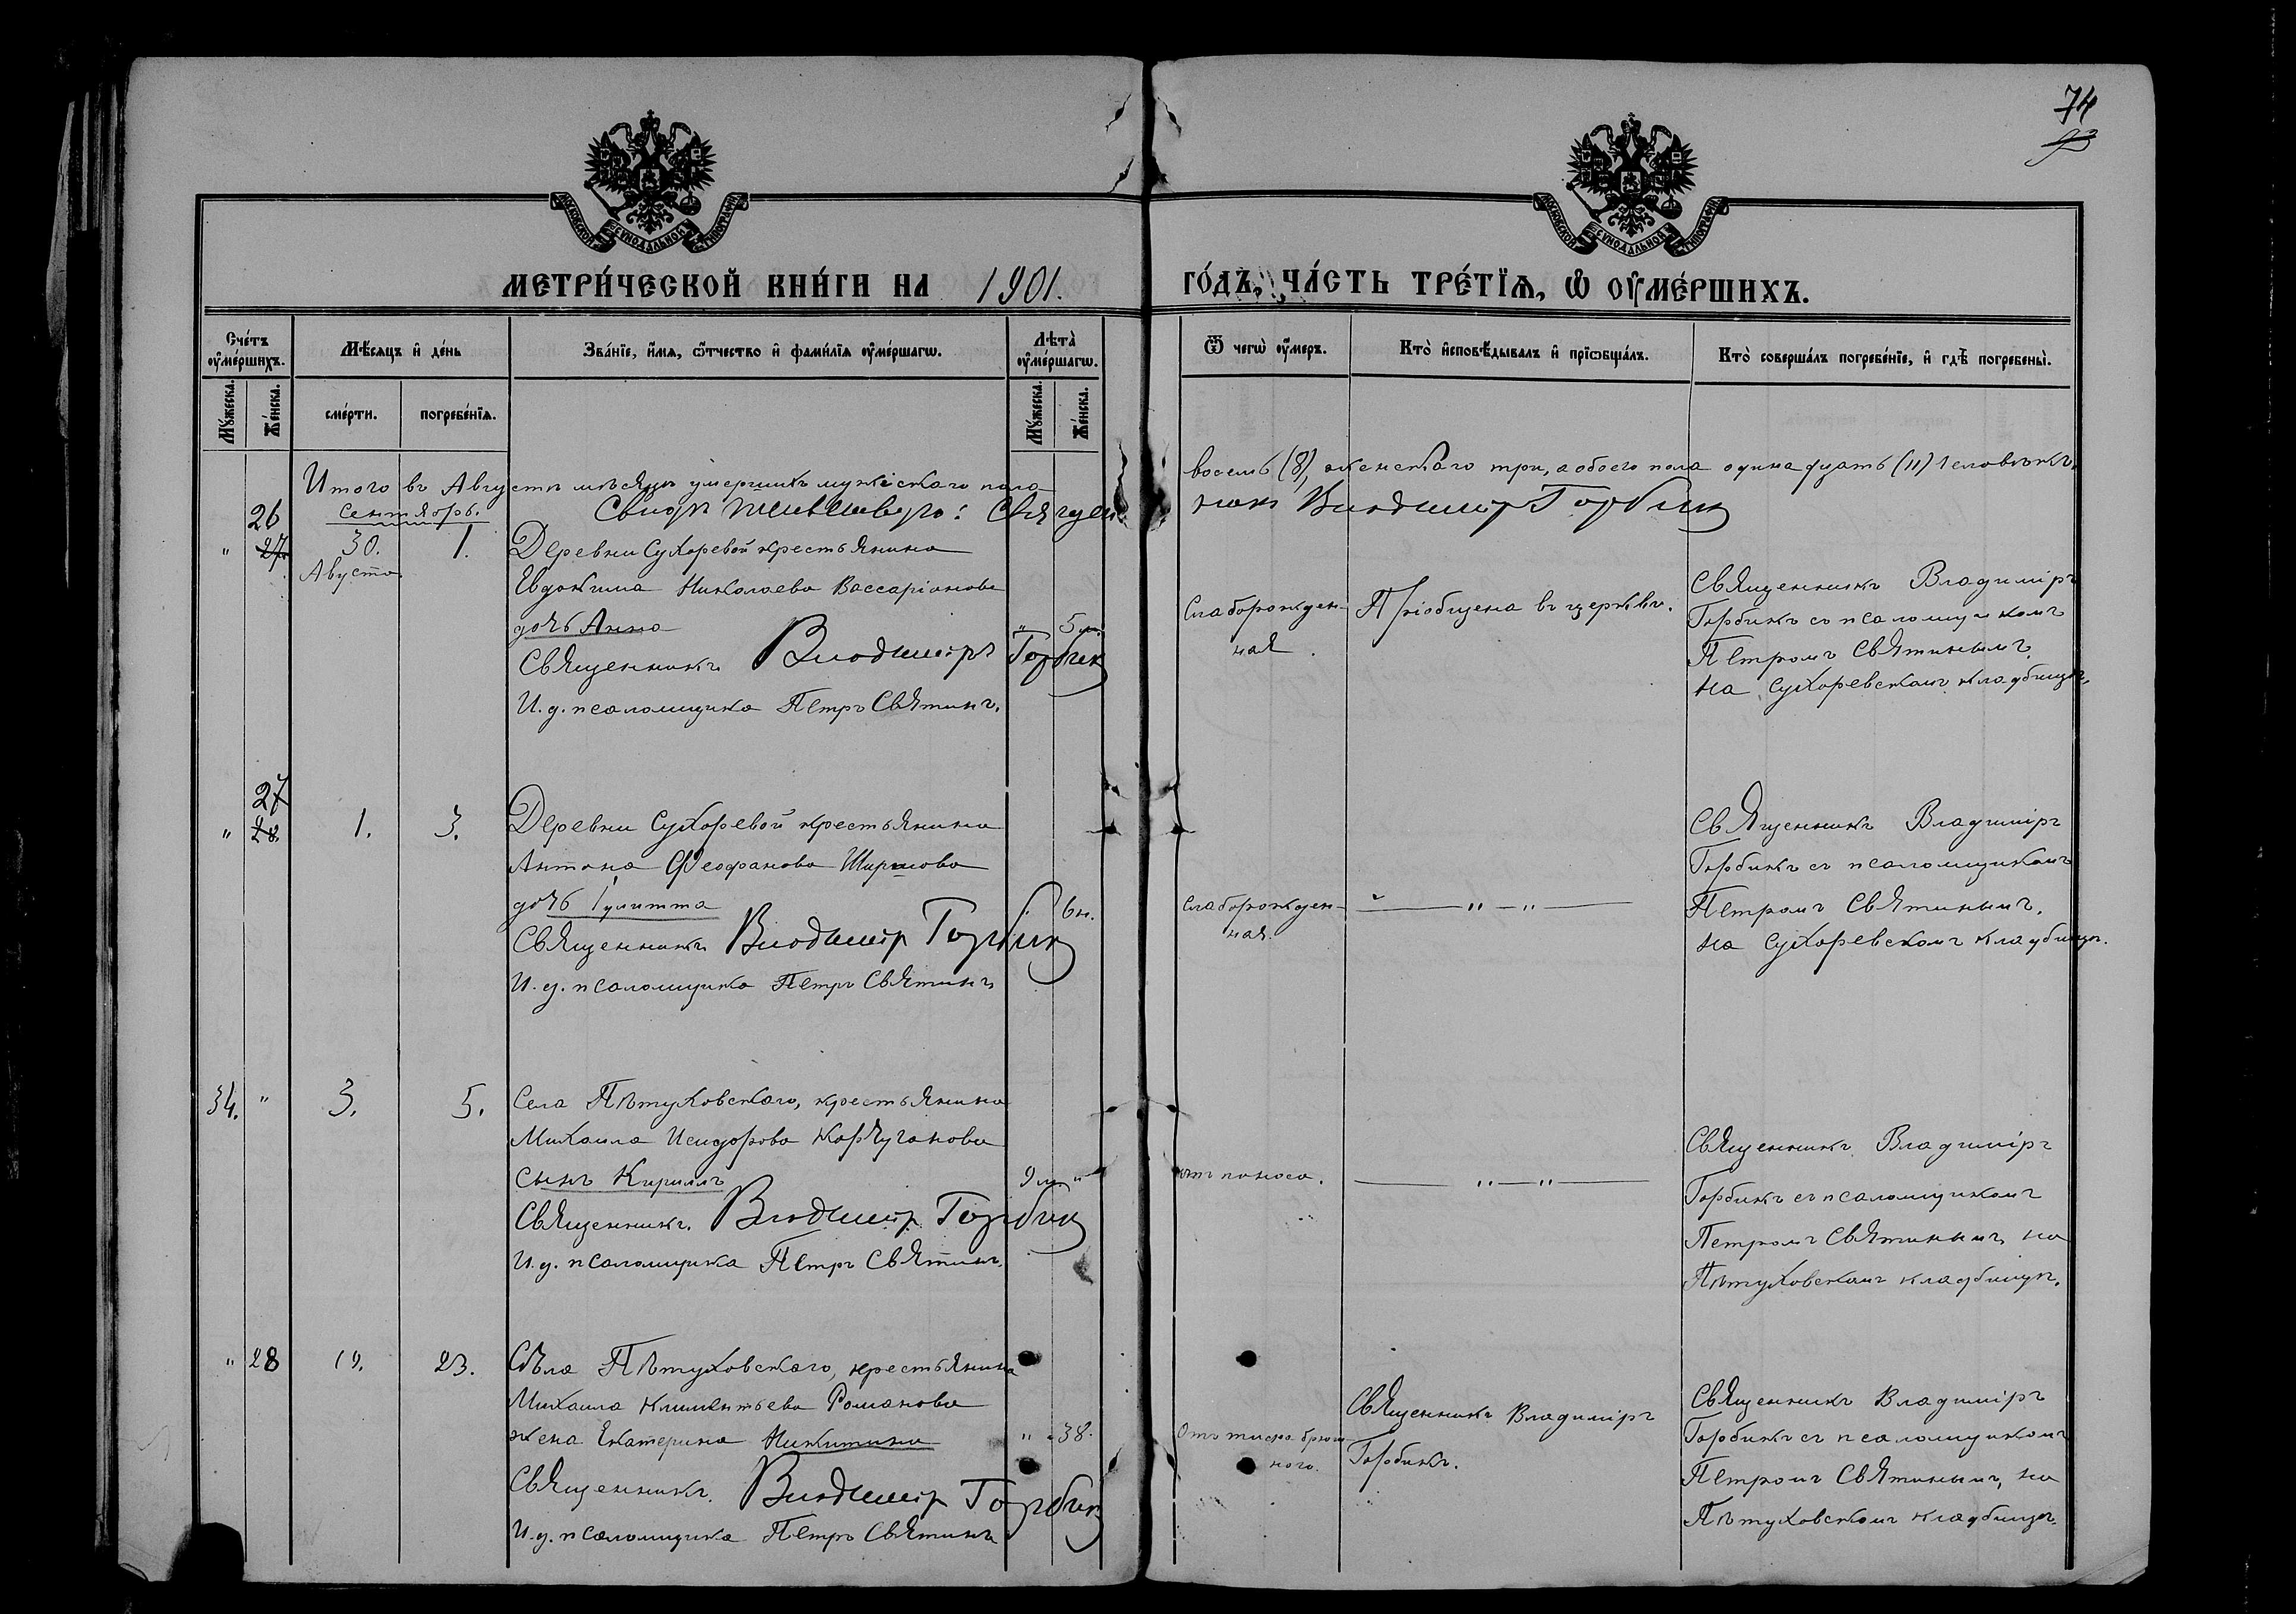 74
93
МОСКОВСКОЙ СѴНОДАЛЬНОЙ ТИПОГРАФІИ
МОСКОВСКОЙ СѴНОДАЛЬНОЙ ТИПОГРАФІИ
МЕТРИ́ЧЕСКОЙ КНИ́ГИ НА 1901.
ГО́ДЪ, ЧА́СТЬ ТРЕ́ТЇѦ, Ѡ ОУ҆МЕ́РШИХЪ.
Сче́тъ
оу҆ме́ршихъ.
Мꙋ́жеска.
Же́нска.
Мѣ́сяцъ и҆ де́нь
сме́рти.
погребе́нїѧ.
Зва́нїе, и҆́мѧ, ѻ҆́тчество и҆ фами́лїѧ оу҆ме́ршагѡ.
Лѣ́та
оу҆ме́ршагѡ.
Мꙋ́жеска.
Же́нска.
Ѿ чегѡ̀ оу҆́меръ.
Кто̀ и҆сповѣ́дывалъ и҆ прїѡбща́лъ.
Кто̀ соверша́лъ погребе́нїе, и҆ гдѣ̀ погребены̀.
Итого въ Августѣ мѣсяцѣ умершихъ мужескаго пола
восемь (8), женскаго три, а обоего пола одинадцать (11) человѣкъ.
Священ
никъ Владиміръ Горбикъ
Сентябрь.
" 26
27. 30. 1.
Августа.
Деревни Сухоревой крестьянина
Евдокима Николаева Вассаріонова
дочь Анна " 5
Священникъ Владиміръ Горбикъ
И. д. псаломщика Петръ Святинъ.
Слаборожден-
ная.
Пріобщена въ церкви.
Священникъ Владиміръ
Горбикъ съ псаломщикомъ
Петромъ Святинымъ,
на Сухоревскомъ кладбищѣ.
27
" 28. 1. 3.
Деревни Сухоревой крестьянина
Антона Феофанова Ширшова
дочь Іулитта 6н.
Священникъ Владиміръ Горбикъ
И. д. псаломщика Петръ Святинъ
Слаборожден-
ная.
" — "
Священникъ Владиміръ
Горбикъ съ псаломщикомъ
Петромъ Святинымъ,
на Сухоревскомъ кладбищѣ.
34. " 3. 5.
Села Пѣтуховскаго, крестьянина
Михаила Исидорова Карчуганова
сынъ Кириллъ 9 м. "
Священникъ Владиміръ Горбикъ
И. д. псаломщика Петръ Святинъ.
отъ поноса.
" — "
Священникъ Владиміръ
Горбикъ съ псаломщикомъ
Петромъ Святинымъ, на
Пѣтуховскомъ кладбищѣ.
" 28 19. 23.
Села Пѣтуховскаго, крестьянина
Михаила Климентьева Романова
жена Екатерина Никитина " 38.
Священникъ Владиміръ Горбикъ
И. д. псаломщика Петръ Святинъ
Отъ тифа брюш-
ного.
Священникъ Владиміръ
Горбикъ.
Священникъ Владиміръ
Горбикъ съ псаломщикомъ
Петромъ Святинымъ, на
Пѣтуховскомъ кладбищѣ.